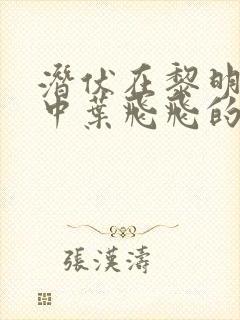 潛伏在黎明
中葉飛飛的
張漢濤